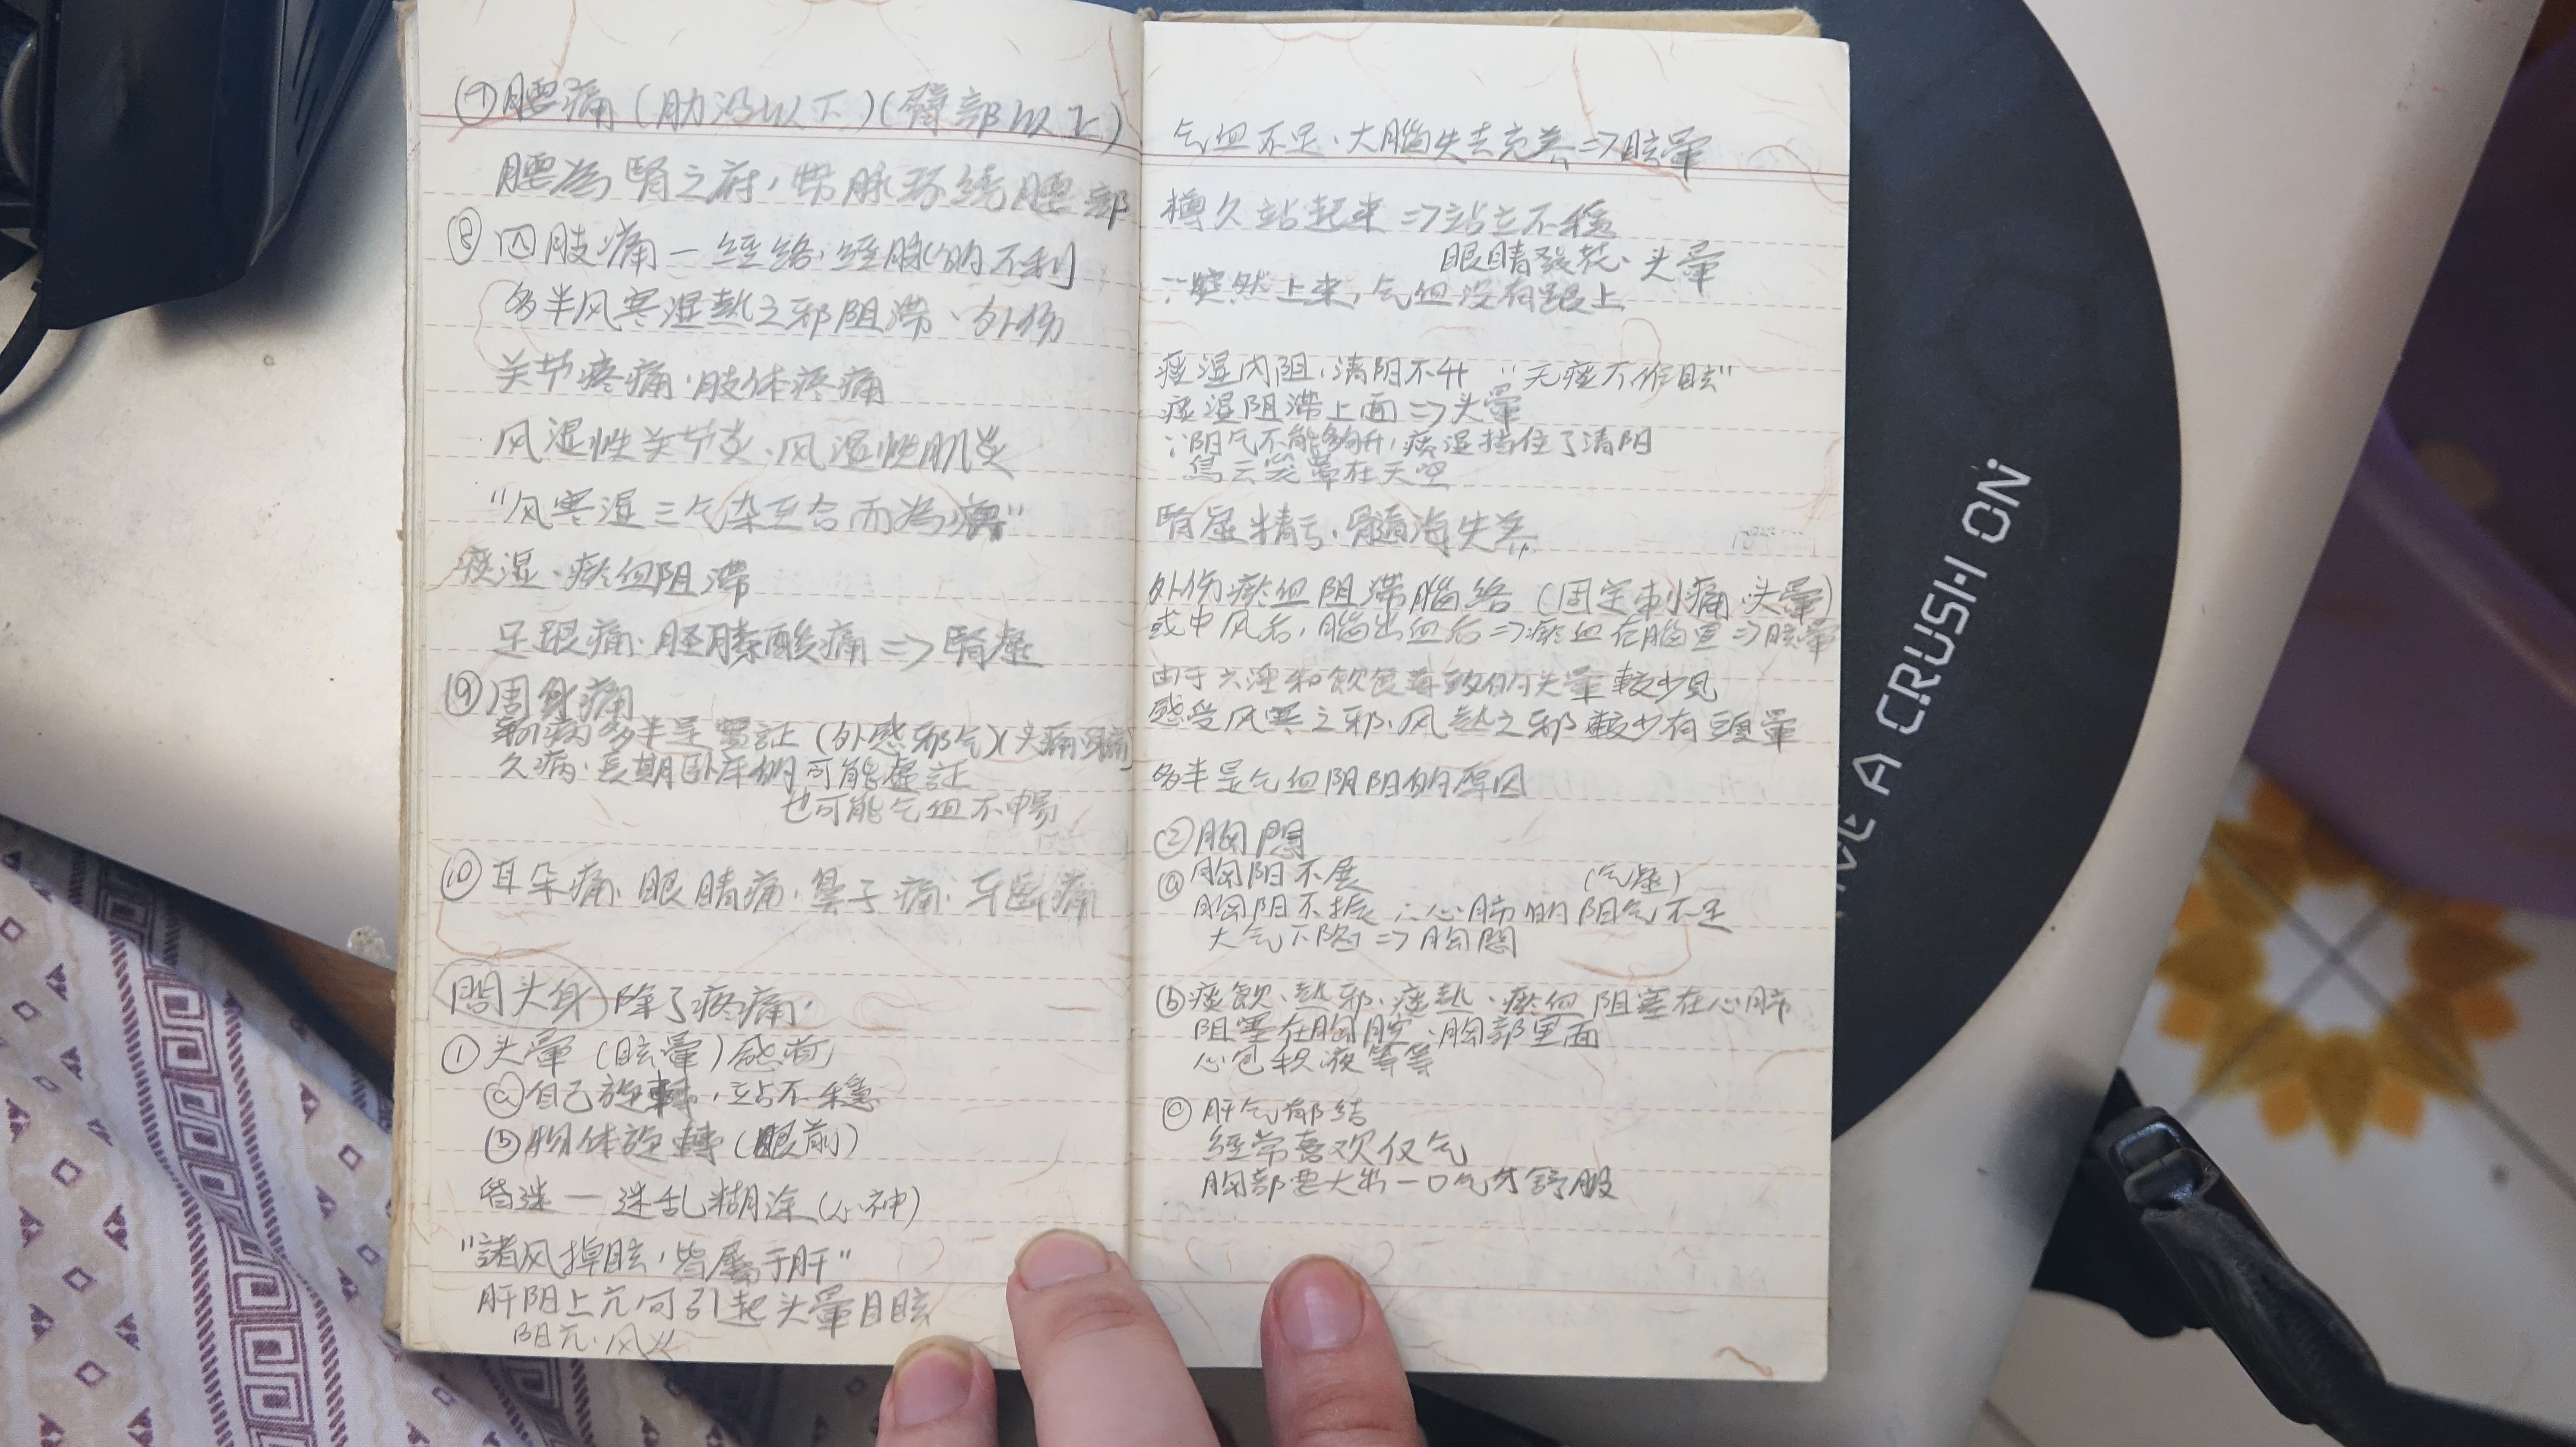 ⑦腰痛(肋没以下)(臂部以上)
腰為腎之府,带脉环绕腰部
⑧四肢痛—经络·经脉的不利
多半风寒湿热之邪阻滞、外伤
关节疼痛·肢体疼痛
风湿性关节炎、风湿性肌炎
"风寒湿三气杂至合而為痹"
痰湿、瘀血阻滞
足跟痛·胫膝酸痛=>腎虚
⑨周身痛
新病多半是實証(外感邪气)(头痛身痛)
久病·長期卧床的可能虚証
也可能气血不暢
⑩耳朵痛·眼睛痛·鼻子痛·牙齒痛
問头身 除了疼痛·
①头暈(眩暈)感覚
ⓐ自己旋轉,站不穩
ⓑ物体旋轉(眼前)
昏迷—迷乱糊涂(心神)
"諸风掉眩,皆屬于肝"
肝阳上亢何引起头暈目眩
阳亢·风火
气血不足·大腦失去充养=>眩暈
蹲久站起来=>站立不穩
眼睛發花·头暈
∵突然上来,气血没有跟上
痰湿内阻,清阳不升 "无痰不作眩"
痰湿阻滞上面=>头暈
∵阳气不能够升,痰湿挡住了清阳
烏云笼罩在天空
腎虚精亏·髓海失养
外伤瘀血阻滞腦络(固定刺痛·头暈)
或中风后,腦出血后=>瘀血在腦里=>眩暈
由于六淫和飲食導致的头暈較少見
感受风寒之邪·风热之邪較少有頭暈
多半是气血阴阳的原因
②胸悶
ⓐ胸阳不展 (气虚)
胸阳不振∴心肺的阳气不足
大气下陷=>胸悶
ⓑ痰飲、热邪、痰热、瘀血阻塞在心肺
阻塞在胸腔·胸部里面
心包积液等等
ⓒ肝气郁结
經常喜欢叹气
胸部要大出一口气才舒服
VE A CRUSH ON